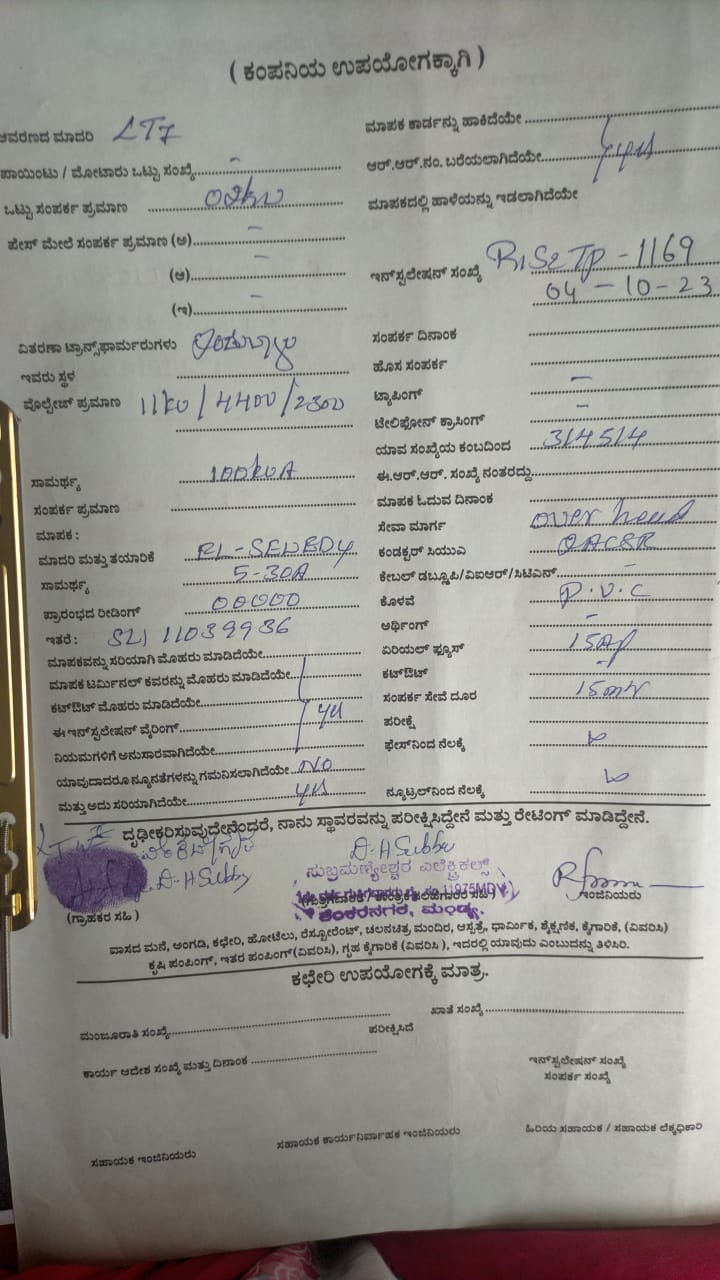 ( ಕಂಪನಿಯ ಉಪಯೋಗಕ್ಕಾಗಿ )
ಆವರಣದ ಮಾದರಿ LT7
ಪಾಯಿಂಟು / ಮೋಟಾರು ಒಟ್ಟು ಸಂಖ್ಯೆ -
ಒಟ್ಟು ಸಂಪರ್ಕ ಪ್ರಮಾಣ 02kw
ಫೇಸ್ ಮೇಲೆ ಸಂಪರ್ಕ ಪ್ರಮಾಣ (ಅ) -
(ಆ) -
(ಇ) -
ವಿತರಣಾ ಟ್ರಾನ್ಸ್‌ಫಾರ್ಮರುಗಳು
ಇವರು ಸ್ಥಳ
ವೊಲ್ಟೇಜ್ ಪ್ರಮಾಣ 11kv / 4400 / 2300
ಸಾಮರ್ಥ್ಯ 100kVA
ಸಂಪರ್ಕ ಪ್ರಮಾಣ
ಮಾಪಕ :
ಮಾದರಿ ಮತ್ತು ತಯಾರಿಕೆ
ಸಾಮರ್ಥ್ಯ 5-30A
ಪ್ರಾರಂಭದ ರೀಡಿಂಗ್ 00000
ಇತರೆ : 11039936
ಮಾಪಕವನ್ನು ಸರಿಯಾಗಿ ಮೊಹರು ಮಾಡಿದೆಯೇ
ಮಾಪಕ ಟರ್ಮಿನಲ್ ಕವರನ್ನು ಮೊಹರು ಮಾಡಿದೆಯೇ
ಕಟ್‌ಔಟ್ ಮೊಹರು ಮಾಡಿದೆಯೇ
ಈ ಇನ್‌ಸ್ಟಲೇಷನ್ ವೈರಿಂಗ್ yes
ನಿಯಮಗಳಿಗೆ ಅನುಸಾರವಾಗಿದೆಯೇ
ಯಾವುದಾದರೂ ನ್ಯೂನತೆಗಳನ್ನು ಗಮನಿಸಲಾಗಿದೆಯೇ No
ಮತ್ತು ಅದು ಸರಿಯಾಗಿದೆಯೇ yes
ಮಾಪಕ ಕಾರ್ಡನ್ನು ಹಾಕಿದೆಯೇ
ಆರ್.ಆರ್.ನಂ. ಬರೆಯಲಾಗಿದೆಯೇ yes
ಮಾಪಕದಲ್ಲಿ ಹಾಳೆಯನ್ನು ಇಡಲಾಗಿದೆಯೇ
ಇನ್‌ಸ್ಟಲೇಷನ್ ಸಂಖ್ಯೆ TP - 1169
04 - 10 - 23
ಸಂಪರ್ಕ ದಿನಾಂಕ
ಹೊಸ ಸಂಪರ್ಕ
ಟ್ಯಾಪಿಂಗ್ -
ಟೇಲಿಫೋನ್ ಕ್ರಾಸಿಂಗ್ -
ಯಾವ ಸಂಖ್ಯೆಯ ಕಂಬದಿಂದ
ಈ.ಆರ್.ಆರ್. ಸಂಖ್ಯೆ ನಂತರದ್ದು
ಮಾಪಕ ಓದುವ ದಿನಾಂಕ
ಸೇವಾ ಮಾರ್ಗ over head
ಕಂಡಕ್ಟರ್ ಸಿಯುಎ
ಕೇಬಲ್ ಡಬ್ಲ್ಯೂಪಿ/ವಿಐಆರ್/ಸಿಟಿಎಸ್ -
ಕೊಳವೆ P.V.C
ಅರ್ಥಿಂಗ್ -
ಏರಿಯಲ್ ಫ್ಯೂಸ್
ಕಟ್‌ಔಟ್ -
ಸಂಪರ್ಕ ಸೇವೆ ದೂರ
ಪರೀಕ್ಷೆ
ಫೇಸ್‌ನಿಂದ ನೆಲಕ್ಕೆ
ನ್ಯೂಟ್ರಲ್‌ನಿಂದ ನೆಲಕ್ಕೆ
ದೃಢೀಕರಿಸುವುದೇನೆಂದರೆ, ನಾನು ಸ್ಥಾವರವನ್ನು ಪರೀಕ್ಷಿಸಿದ್ದೇನೆ ಮತ್ತು ರೇಟಿಂಗ್ ಮಾಡಿದ್ದೇನೆ.
D-H Subby
ಸುಬ್ರಮಣ್ಯೇಶ್ವರ ಎಲೆಕ್ಟ್ರಿಕಲ್ಸ್
ಶಂಕರನಗರ, ಮಂಡ್ಯ.
(ಗ್ರಾಹಕರ ಸಹಿ )
ಇಂಜಿನಿಯರು
ವಾಸದ ಮನೆ, ಅಂಗಡಿ, ಕಛೇರಿ, ಹೋಟೆಲು, ರೆಸ್ಟೋರೆಂಟ್, ಚಲನಚಿತ್ರ ಮಂದಿರ, ಆಸ್ಪತ್ರೆ, ಧಾರ್ಮಿಕ, ಶೈಕ್ಷಣಿಕ, ಕೈಗಾರಿಕೆ, (ವಿವರಿಸಿ)
ಕೃಷಿ ಪಂಪಿಂಗ್, ಇತರ ಪಂಪಿಂಗ್(ವಿವರಿಸಿ), ಗೃಹ ಕೈಗಾರಿಕೆ (ವಿವರಿಸಿ ), ಇದರಲ್ಲಿ ಯಾವುದು ಎಂಬುದನ್ನು ತಿಳಿಸಿರಿ.
ಕಛೇರಿ ಉಪಯೋಗಕ್ಕೆ ಮಾತ್ರ.
ಮಂಜೂರಾತಿ ಸಂಖ್ಯೆ
ಪರೀಕ್ಷಿಸಿದೆ
ಖಾತೆ ಸಂಖ್ಯೆ
ಕಾರ್ಯ ಆದೇಶ ಸಂಖ್ಯೆ ಮತ್ತು ದಿನಾಂಕ
ಇನ್‌ಸ್ಟಲೇಷನ್ ಸಂಖ್ಯೆ
ಸಂಪರ್ಕ ಸಂಖ್ಯೆ
ಸಹಾಯಕ ಇಂಜಿನಿಯರು
ಸಹಾಯಕ ಕಾರ್ಯನಿರ್ವಾಹಕ ಇಂಜಿನಿಯರು
ಹಿರಿಯ ಸಹಾಯಕ / ಸಹಾಯಕ ಲೆಕ್ಕಧಿಕಾರಿ